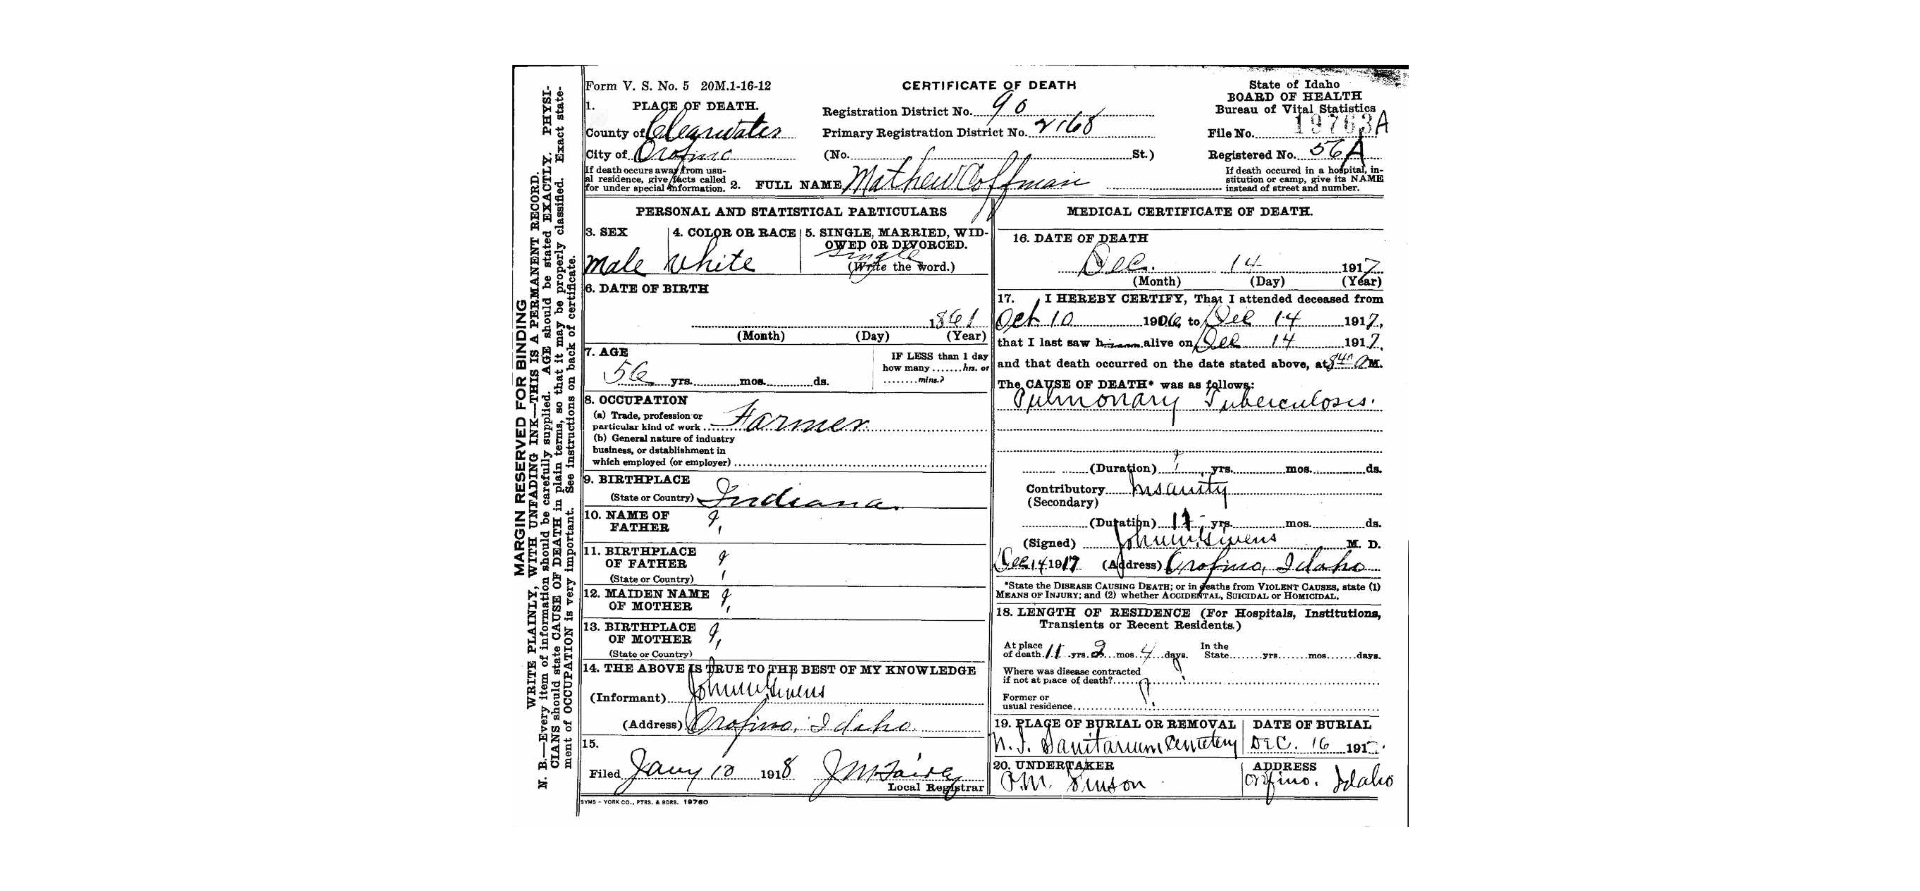 MARGIN RESERVED FOR BINDING
WRITE PLAINLY, WITH UNFADING INK—THIS IS A PERMANENT RECORD.
N. B.—Every item of information should be carefully supplied. AGE should be stated EXACTLY. PHYSI-
CIANS should state CAUSE OF DEATH in plain terms, so that it may be properly classified. Exact state-
ment of OCCUPATION is very important. See instructions on back of certificate.
Form V. S. No. 5 20M.1-16-12
CERTIFICATE OF DEATH
State of Idaho
BOARD OF HEALTH
Bureau of Vital Statistics
File No. 19763A
Registered No. 56A
If death occured in a hospital, in-
stitution or camp, give its NAME
instead of street and number.
1. PLACE OF DEATH.
County of Clearwater
City of Orofino
If death occurs away from usu-
al residence, give facts called
for under special information.
Registration District No. 90
Primary Registration District No. 2168
(No. St.)
2. FULL NAME Mathew Coffman
PERSONAL AND STATISTICAL PARTICULARS
3. SEX
male
4. COLOR OR RACE
White
5. SINGLE, MARRIED, WID-
OWED OR DIVORCED.
Single
(Write the word.)
6. DATE OF BIRTH
1861
(Month) (Day) (Year)
7. AGE
56 yrs. mos. ds.
IF LESS than 1 day
how many ....... hrs. or
........ mins.?
8. OCCUPATION
(a) Trade, profession or
particular kind of work Farmer
(b) General nature of industry
business, or dstablishment in
which employed (or employer)
9. BIRTHPLACE
(State or Country) Indiana.
10. NAME OF
FATHER ?
11. BIRTHPLACE
OF FATHER ?
(State or Country)
12. MAIDEN NAME
OF MOTHER ?
13. BIRTHPLACE
OF MOTHER ?
(State or Country)
14. THE ABOVE IS TRUE TO THE BEST OF MY KNOWLEDGE
(Informant) John W. Givens
(Address) Orofino, Idaho
15.
Filed Jany 10 1918
Local Registrar
SYMS-YORK CO., PTRS. & BDRS. 19760
MEDICAL CERTIFICATE OF DEATH.
16. DATE OF DEATH
Dec. 14 1917
(Month) (Day) (Year)
17. I HEREBY CERTIFY, That I attended deceased from
Oct 10 1906, to Dec 14 1917,
that I last saw h alive on Dec 14 1917,
and that death occurred on the date stated above, at M.
The CAUSE OF DEATH* was as follows:
Pulmonary Tuberculosis.
(Duration) ? yrs. mos. ds.
Contributory Insanity
(Secondary)
(Duration) 11 yrs. mos. ds.
(Signed) John W. Givens M. D.
Dec 14 1917 (Address) Orofino, Idaho
*State the DISEASE CAUSING DEATH; or in deaths from VIOLENT CAUSES, state (1)
MEANS OF INJURY; and (2) whether ACCIDENTAL, SUICIDAL or HOMICIDAL.
18. LENGTH OF RESIDENCE (For Hospitals, Institutions,
Transients or Recent Residents.)
At place
of death 11 yrs. 2 mos. 4 days.
In the
State yrs. mos. days.
Where was disease contracted
if not at place of death? ?
Former or
usual residence ?
19. PLACE OF BURIAL OR REMOVAL
N. I. Sanitarium Cemetery
DATE OF BURIAL
DEC. 16 191
20. UNDERTAKER
ADDRESS
Orofino, Idaho